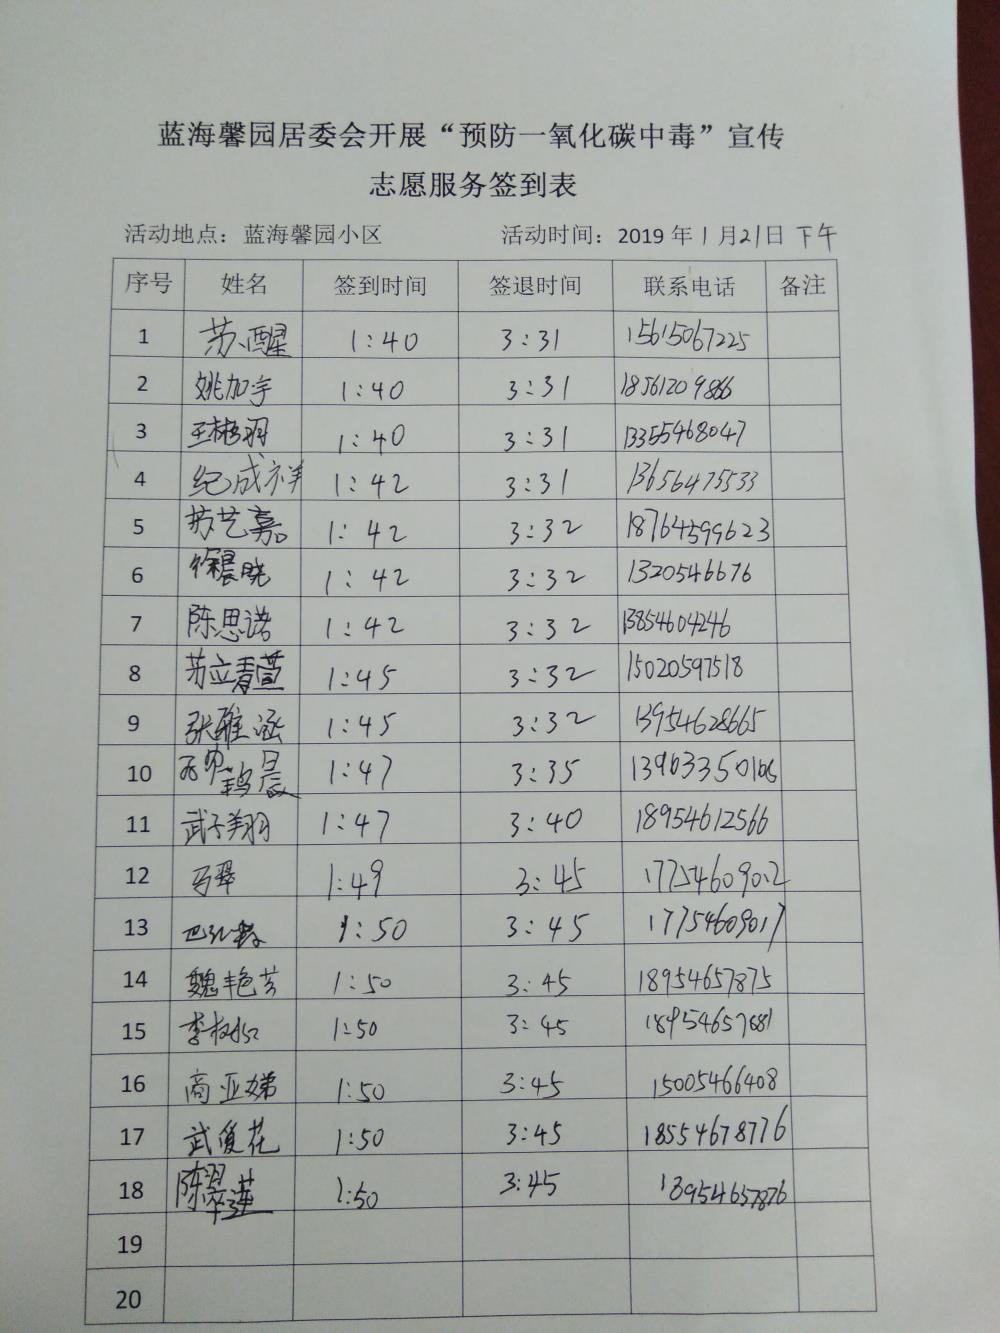 蓝海馨园居委会开展“预防一氧化碳中毒”宣传
志愿服务签到表
活动地点：蓝海馨园小区 活动时间：2019年1月21日下午
序号 姓名 签到时间 签退时间 联系电话 备注
1 苏醒 1:40 3:31 15615067225
2 姚加宇 1:40 3:31 18561209866
3 王彬羽 1:40 3:31 13355468047
4 纪成祥 1:42 3:31 13656475533
5 苏艺嘉 1:42 3:32 18764599623
6 徐晨晓 1:42 3:32 1320546676
7 陈思诺 1:42 3:32 13854604246
8 苏立青萱 1:45 3:32 15020597518
9 张雅涵 1:45 3:32 13954628665
10 1:47 3:35
11 武子翔 1:47 3:40 18954612566
12 马翠 1:49 3:45 17754609012
13 1:50 3:45 17754609017
14 魏艳芳 1:50 3:45 18954657875
15 1:50 3:45 18954657681
16 商亚娣 1:50 3:45 15005466408
17 武俊花 1:50 3:45 18554678776
18 陈翠莲 1:50 3:45 13954657876
19
20